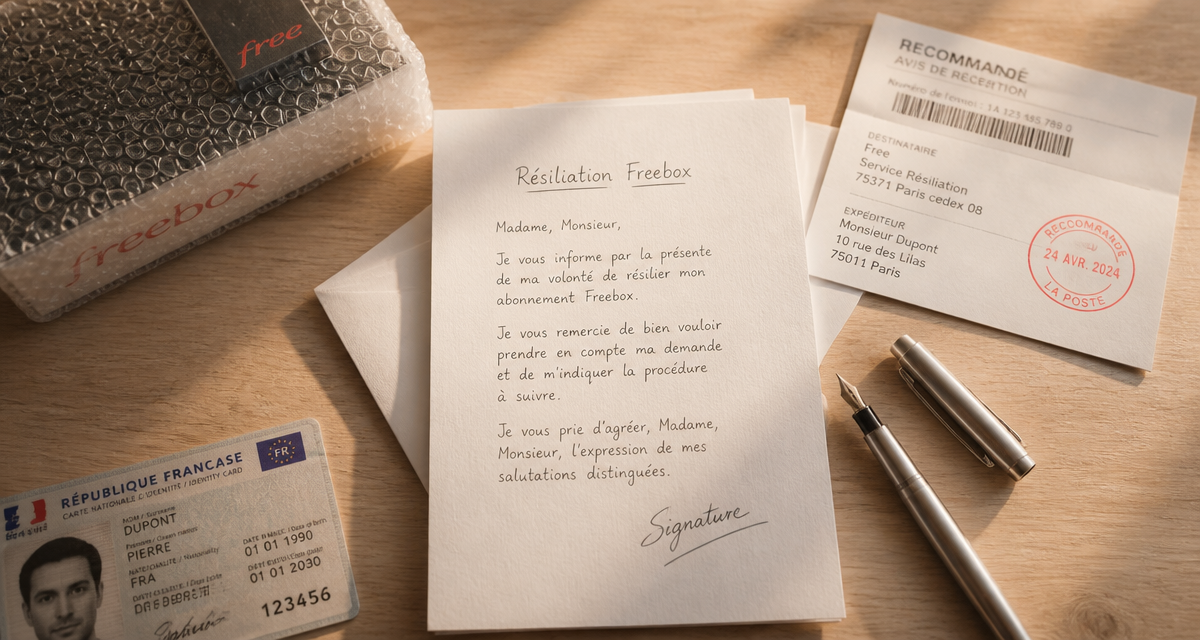 free
freebox
Résiliation Freebox
Madame, Monsieur,
Je vous informe par la présente
de ma volonté de résilier mon
abonnement Freebox.
Je vous remercie de bien vouloir
prendre en compte ma demande
et de m'indiquer la procédure
à suivre.
Je vous prie d'agréer, Madame,
Monsieur, l'expression de mes
salutations distinguées.
Signature
RECOMMANDÉ
AVIS DE RÉCEPTION
Numéro de l'envoi : 1A 123 455 789 0
DESTINATAIRE
Free
Service Résiliation
75371 Paris cedex 08
EXPÉDITEUR
Monsieur Dupont
10 rue des Lilas
75011 Paris
RECCOMRARDE
24 AVR. 2024
LA POSTE
RÉPUBLIQUE FRANCASE
FR
CARTE NATIONALE D'IDENTITÉ / IDENTITY CARD
DUPONT
PIERRE
FRA
01 01 1990
01 01 2030
123456